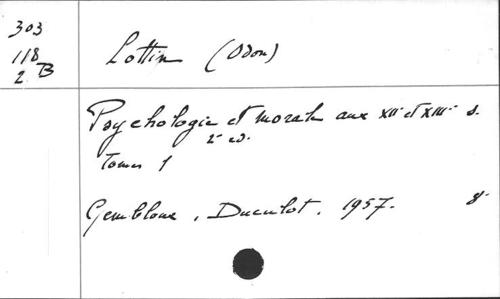 303
118
2 B
Lottin (Odon)
Psychologie et morale aux XIIe et XIIIe s.
2e ed.
Tomes 1
Gembloux, Duculot, 1957. 8°